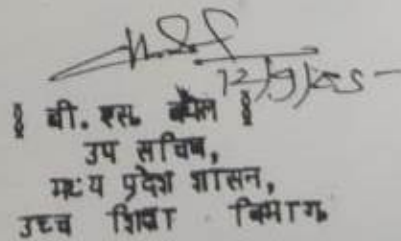 12/9/05
[ बी. एस. बघेल ]
उप सचिव,
मध्य प्रदेश शासन,
उच्च शिक्षा विभाग